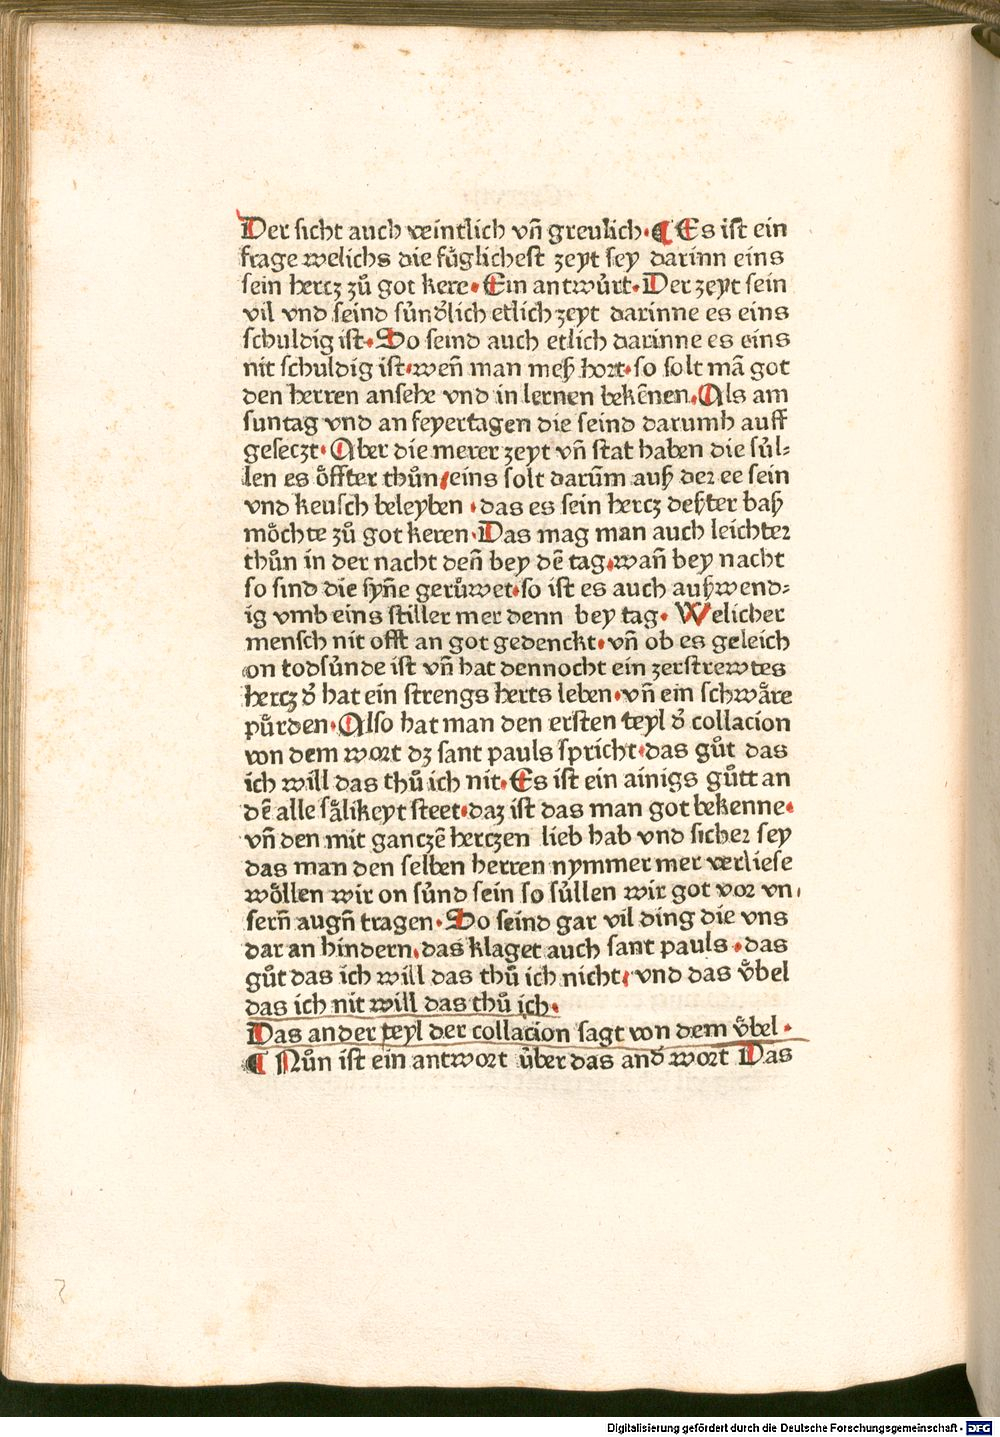 Der sicht auch veintlich vn̄ greulich· ¶ Es ist ein
frage welichs die fuͤglichest zeyt sey darinn eins
sein hertz zuͦ got kere· Ein antwuͦrt· Der zeyt sein
vil vnd seind suͦndͦlich etlich zeyt darinne es eins
schuldig ist· So seind auch etlich darinne es eins
nit schuldig ist· wen̄ man meß hort· so solt mā got
den herren ansehe vnd in lernen bekēnen· Als am
suntag vnd an feyertagen die seind darumb auff
geseczt· Aber die merer zeyt vn̄ stat haben die suͦl-
len es oͤffter thuͦn/ eins solt darūm auß der ee sein
vnd keusch beleyben · das es sein hercz deßter baß
moͤchte zuͦ got keren· Das mag man auch leichter
thuͦn in der nacht den̄ bey dē tag· wan̄ bey nacht
so sind die syn̄e geruͦwet· so ist es auch außwend-
ig vmb eins stiller mer denn bey tag· Welicher
mensch nit offt an got gedenckt· vn̄ ob es geleich
on todsuͦnde ist vn̄ hat dennocht ein zerstrewtes
hercz dͦ hat ein strengs herts leben· vn̄ ein schwaͤre
puͤrden· Also hat man den ersten teyl dͦ collacion
von dem wort dz sant pauls spricht· das guͦt das
ich will das thuͦ ich nit· Es ist ein ainigs guͦtt an
dē alle saͤlikeyt steet· daz ist das man got bekenne·
vn̄ den mit ganczē herczen lieb hab vnd sicher sey
das man den selben herren nymmer mer verliese
woͤllen wir on suͦnd sein so suͦllen wir got vor vn-
sern̄ augn̄ tragen· So seind gar vil ding die vns
dar an hindern· das klaget auch sant pauls · das
guͦt das ich will das thuͦ ich nicht· vnd das vͦbel
das ich nit will das thuͦ ich·
Das ander teyl der collacion sagt von dem vͦbel ·
¶ Nuͦn ist ein antwort uͦber das andͦ wort Das
Digitalisierung gefördert durch die Deutsche Forschungsgemeinschaft - DFG